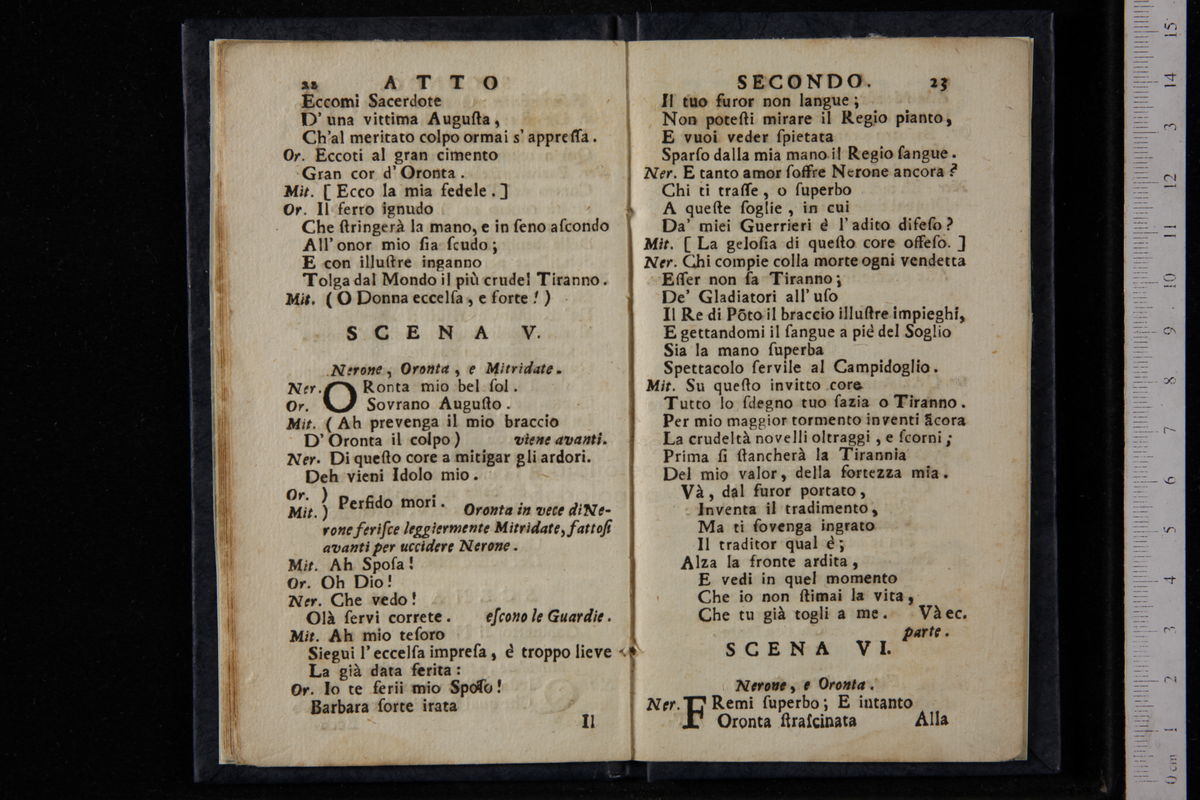 22 ATTO
Eccomi Sacerdote
D' una vittima Auguſta,
Ch'al meritato colpo ormai s' appreſſa.
Or. Eccoti al gran cimento
Gran cor d' Oronta.
Mit. [ Ecco la mia fedele. ]
Or. Il ferro ignudo
Che ſtringerà la mano, e in ſeno aſcondo
All' onor mio ſia ſcudo;
E con illuſtre inganno
Tolga dal Mondo il più crudel Tiranno.
Mit. (O Donna eccelſa, e forte!)
SCENA V.
Nerone, Oronta, e Mitridate.
Ner. ORonta mio bel ſol.
Or. Sovrano Auguſto.
Mit. (Ah prevenga il mio braccio
D' Oronta il colpo) viene avanti.
Ner. Di queſto core a mitigar gli ardori.
Deh vieni Idolo mio.
Or. )
Mit. ) Perfido mori. Oronta in vece di Ne-
rone feriſce leggiermente Mitridate, fattoſi
avanti per uccidere Nerone.
Mit. Ah Spoſa!
Or. Oh Dio!
Ner. Che vedo!
Olà ſervi correte. eſcono le Guardie.
Mit. Ah mio teſoro
Siegui l' eccelſa impreſa, è troppo lieve
La già data ferita:
Or. Io te ferii mio Spoſo!
Barbara ſorte irata
Il
SECONDO. 23
Il tuo furor non langue;
Non poteſti mirare il Regio pianto,
E vuoi veder ſpietata
Sparſo dalla mia mano il Regio ſangue.
Ner. E tanto amor ſoffre Nerone ancora?
Chi ti traſſe, o ſuperbo
A queſte ſoglie, in cui
Da' miei Guerrieri è l' adito difeſo?
Mit. [ La geloſia di queſto core offeſo. ]
Ner. Chi compie colla morte ogni vendetta
Eſſer non ſa Tiranno;
De' Gladiatori all' uſo
Il Re di Põto il braccio illuſtre impieghi,
E gettandomi il ſangue a piè del Soglio
Sia la mano ſuperba
Spettacolo ſervile al Campidoglio.
Mit. Su queſto invitto core
Tutto lo ſdegno tuo ſazia o Tiranno.
Per mio maggior tormento inventi ãcora
La crudeltà novelli oltraggi, e ſcorni;
Prima ſi ſtancherà la Tirannia
Del mio valor, della fortezza mia.
Và, dal furor portato,
Inventa il tradimento,
Ma ti ſovenga ingrato
Il traditor qual è;
Alza la fronte ardita,
E vedi in quel momento
Che io non ſtimai la vita,
Che tu già togli a me. Và ec.
parte.
SCENA VI.
Nerone, e Oronta.
Ner. FRemi ſuperbo; E intanto
Oronta ſtraſcinata
Alla
0 cm 1 2 3 4 5 6 7 8 9 10 11 12 3 14 15